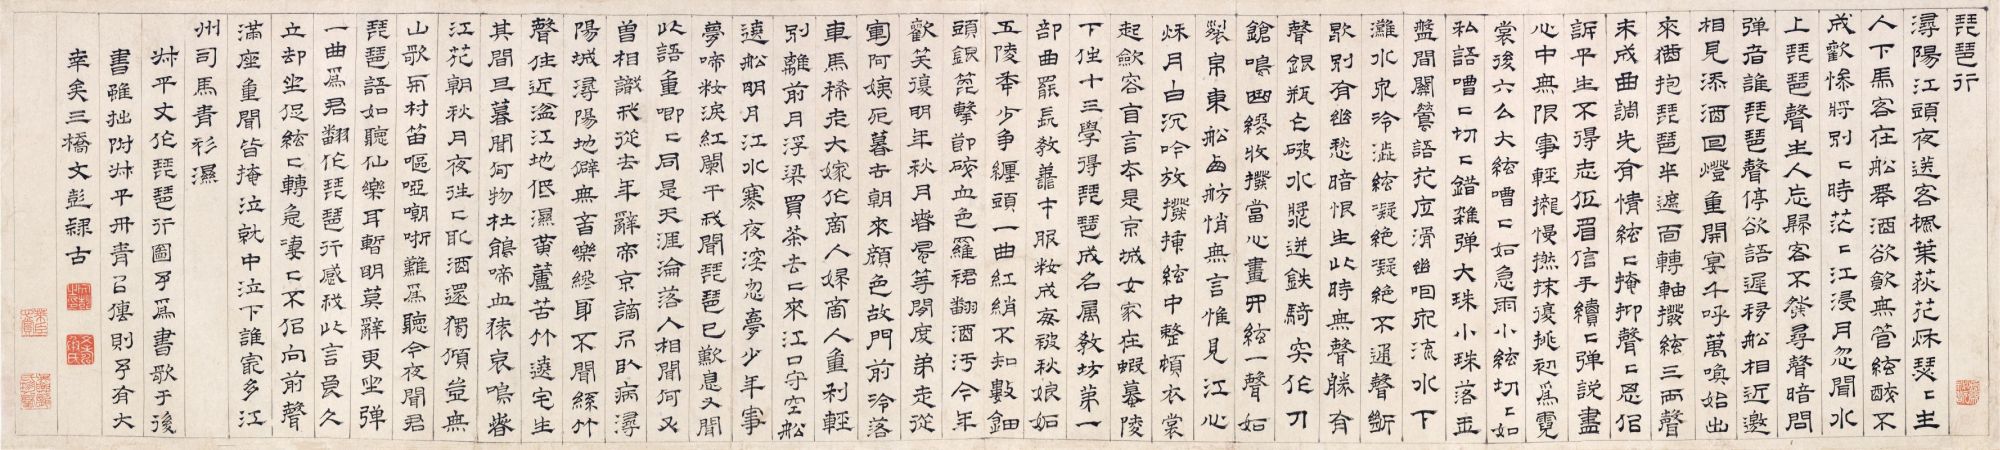 琵琶行
潯陽江頭夜送客楓葉荻花秌瑟〻主
人下馬客在船舉酒欲飲無管絃醉不
成歡慘將別〻時茫〻江浸月忽聞水
上琵琶聲主人忘歸客不發尋聲暗問
彈者誰琵琶聲停欲語遲移船相近邀
相見添酒回燈重開宴千呼萬喚始出
來猶抱琵琶半遮面轉軸撥絃三兩聲
未成曲調先有情絃〻掩抑聲〻思似
訴平生不得志低眉信手續〻彈說盡
心中無限事輕攏慢撚抹復挑初爲霓
裳後六么大絃嘈〻如急雨小絃切〻如
私語嘈〻切〻錯雜彈大珠小珠落玉
盤間關鶯語花底滑幽咽泉流水下
灘水泉冷澁絃凝絕凝絕不通聲漸
歇別有幽愁暗恨生此時無聲勝有
聲銀瓶乍破水漿迸鐵騎突作刀
鎗鳴曲終收撥當心畫四絃一聲如
裂帛東船西舫悄無言惟見江心
秌月白沉吟放撥插絃中整頓衣裳
起斂容自言本是京城女家在蝦蟇陵
下住十三學得琵琶成名屬教坊第一
部曲罷長教善才服粧成每被秋娘妬
五陵年少爭纏頭一曲紅綃不知數鈿
頭銀篦擊節碎血色羅裙翻酒汚今年
歡笑復明年秋月春風等閑度弟走從
軍阿姨死暮去朝來顏色故門前冷落
車馬稀老大嫁作商人婦商人重利輕
別離前月浮梁買茶去〻來江口守空船
遶船明月江水寒夜深忽夢少年事
夢啼粧淚紅闌干我聞琵琶已歎息又聞
此語重唧〻同是天涯淪落人相聞何必
曾相識我從去年辭帝京謫居臥病潯
陽城潯陽地僻無音樂終歲不聞絲竹
聲住近湓江地低濕黃蘆苦竹遶宅生
其間旦暮聞何物杜鵑啼血猿哀鳴春
江花朝秋月夜往〻取酒還獨傾豈無
山歌與村笛嘔啞嘲哳難爲聽今夜聞君
琵琶語如聽仙樂耳暫明莫辭更坐彈
一曲爲君翻作琵琶行感我此言良久
立却坐促絃〻轉急凄〻不似向前聲
滿座重聞皆掩泣就中泣下誰寂多江
州司馬青衫濕
叔平丈作琵琶行圖予爲書歌于後
書雖拙附叔平丹青以傳則予有大
幸矣三橋文彭隸古